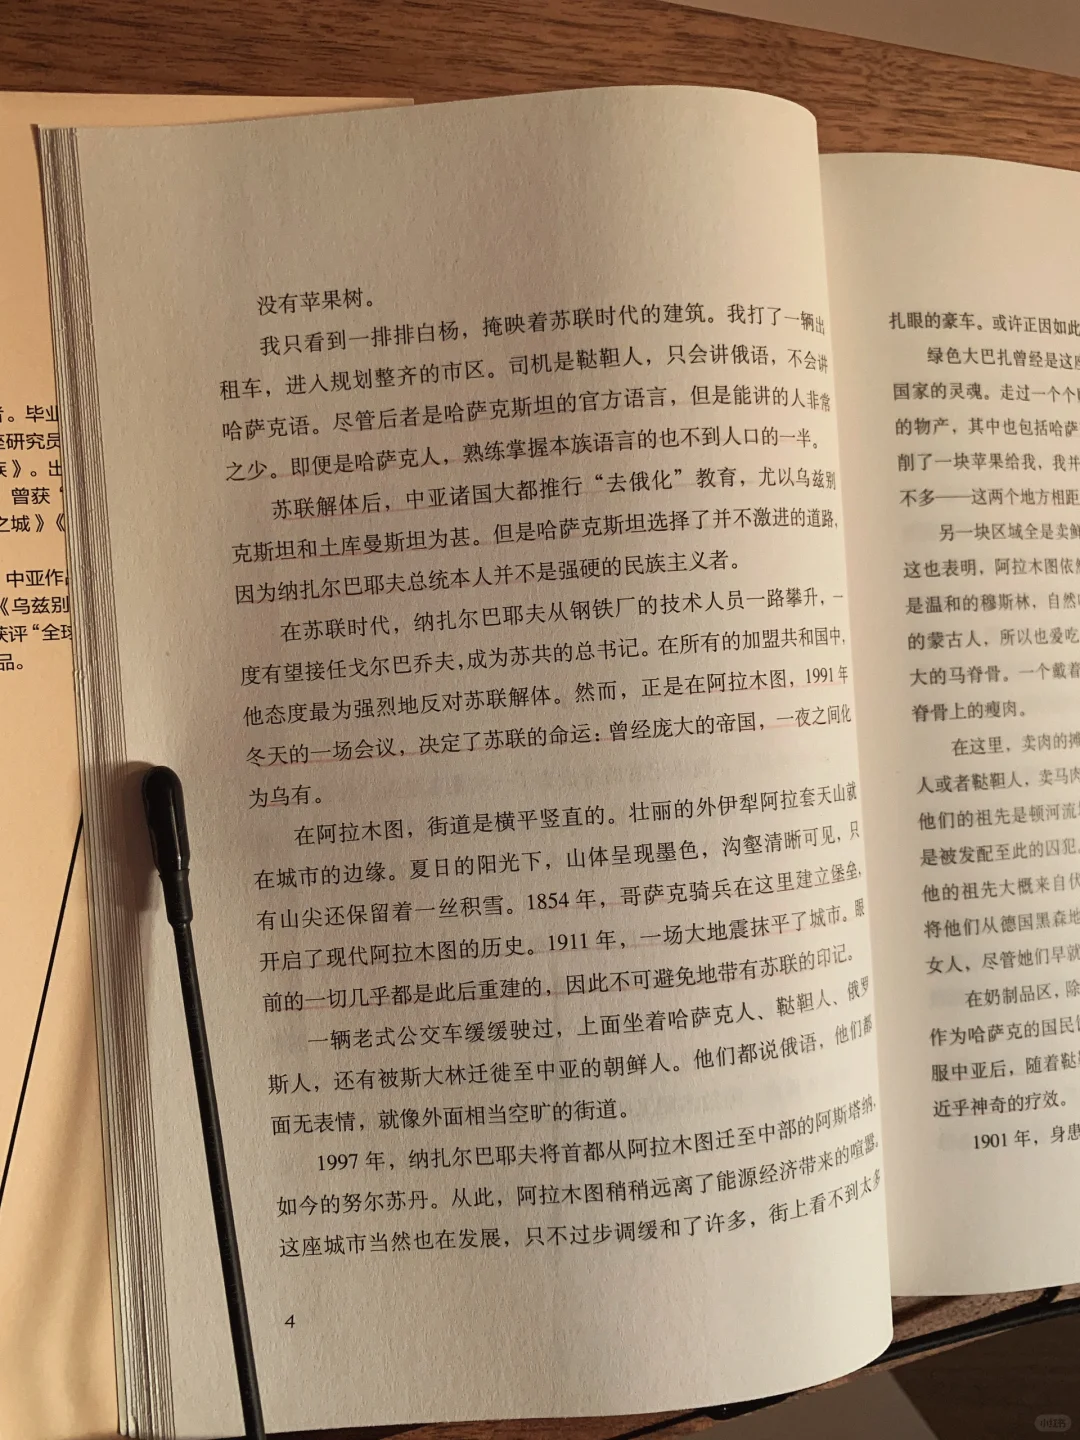 者。毕业
座研究员
族》。出
曾获“
之城》《
中亚作品
《乌兹别
获评“全球
品。
没有苹果树。
我只看到一排排白杨，掩映着苏联时代的建筑。我打了一辆出
租车，进入规划整齐的市区。司机是鞑靼人，只会讲俄语，不会讲
哈萨克语。尽管后者是哈萨克斯坦的官方语言，但是能讲的人非常
之少。即便是哈萨克人，熟练掌握本族语言的也不到人口的一半。
苏联解体后，中亚诸国大都推行“去俄化”教育，尤以乌兹别
克斯坦和土库曼斯坦为甚。但是哈萨克斯坦选择了并不激进的道路，
因为纳扎尔巴耶夫总统本人并不是强硬的民族主义者。
在苏联时代，纳扎尔巴耶夫从钢铁厂的技术人员一路攀升，一
度有望接任戈尔巴乔夫，成为苏共的总书记。在所有的加盟共和国中，
他态度最为强烈地反对苏联解体。然而，正是在阿拉木图，1991年
冬天的一场会议，决定了苏联的命运：曾经庞大的帝国，一夜之间化
为乌有。
在阿拉木图，街道是横平竖直的。壮丽的外伊犁阿拉套天山就
在城市的边缘。夏日的阳光下，山体呈现墨色，沟壑清晰可见，只
有山尖还保留着一丝积雪。1854年，哥萨克骑兵在这里建立堡垒，
开启了现代阿拉木图的历史。1911年，一场大地震抹平了城市。眼
前的一切几乎都是此后重建的，因此不可避免地带有苏联的印记。
一辆老式公交车缓缓驶过，上面坐着哈萨克人、鞑靼人、俄罗
斯人，还有被斯大林迁徙至中亚的朝鲜人。他们都说俄语，他们都
面无表情，就像外面相当空旷的街道。
1997年，纳扎尔巴耶夫将首都从阿拉木图迁至中部的阿斯塔纳，
如今的努尔苏丹。从此，阿拉木图稍稍远离了能源经济带来的喧嚣。
这座城市当然也在发展，只不过步调缓和了许多，街上看不到太多
4
扎眼的豪车。或许正因如此
绿色大巴扎曾经是这座
国家的灵魂。走过一个个
的物产，其中也包括哈萨
削了一块苹果给我，我并
不多——这两个地方相距
另一块区域全是卖鲜
这也表明，阿拉木图依然
是温和的穆斯林，自然
的蒙古人，所以也爱吃
大的马脊骨。一个戴着
脊骨上的瘦肉。
在这里，卖肉的摊
人或者鞑靼人，卖马肉
他们的祖先是顿河流
是被发配至此的囚犯。
他的祖先大概来自伏
将他们从德国黑森地
女人，尽管她们早就
在奶制品区，除
作为哈萨克的国民
服中亚后，随着鞑
近乎神奇的疗效。
1901年，身患
小红书